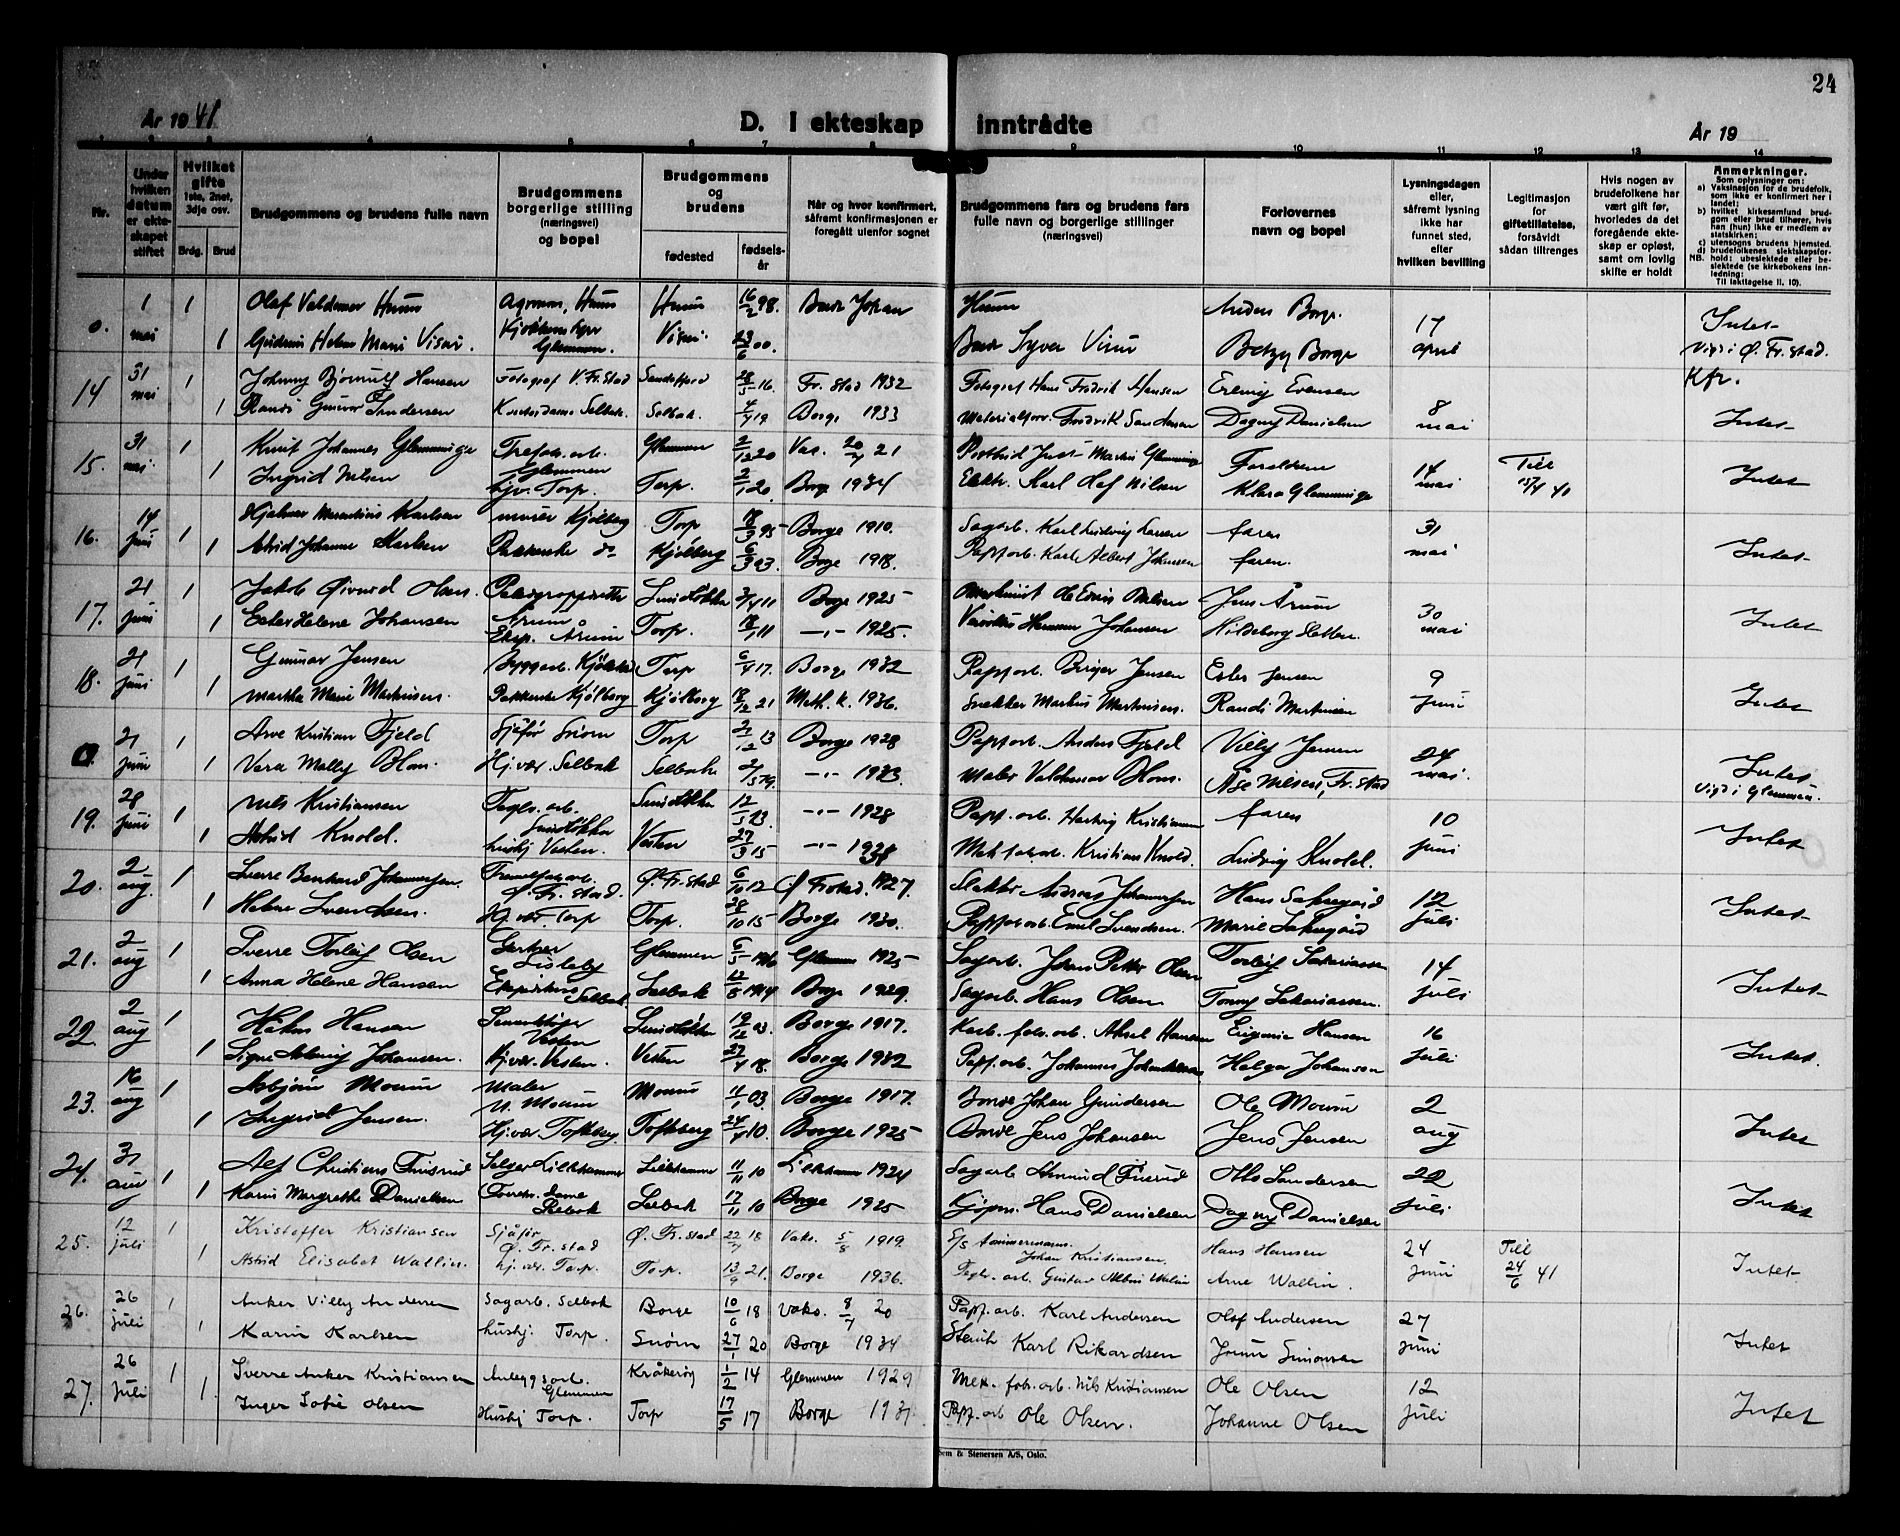 24
År 1941
D. I ekteskap inntrådte
År 19
Nr.
Under hvilken datum er ekteskapet stiftet
Hvilket gifte 1ste, 2net, 3dje osv.
Brdg. Brud
Brudgommens og brudens fulle navn
Brudgommens borgerlige stilling (næringsvei) og bopel
Brudgommens og brudens
fødested
fødselsår
Når og hvor konfirmert, såfremt konfirmasjonen er foregått utenfor sognet
Brudgommens fars og brudens fars fulle navn og borgerlige stillinger (næringsvei)
Forlovernes navn og bopel
Lysningsdagen eller, såfremt lysning ikke har funnet sted, eller hvilken bevilling
Legitimasjon for giftetillatelse, forsåvidt sådan tiltrenges
Hvis nogen av brudefolkene har vært gift før, hvorledes da det foregående ekteskap er opløst, samt om lovlig skifte er holdt
Anmerkninger.
Som oplysninger om:
a) Vaksinasjon for de brudefolk, som ikke er konfirmert her i landet;
b) hvilket kirkesamfund brudgom eller brud tilhører, hvis han (hun) ikke er medlem av statskirken;
c) utensogns brudens hjemsted.
d) brudefolkenes slektskapsforhold: ubeslektede eller beslektede (se kirkebokens innledning:
Til iakttagelse II. 10).
0. 1 mai 1 Olaf Valdemar Huus Huus 16/2 98. Johan Anders Borge
1 Helene Marie Glemmen. 23/6 00. Betzy Borge 17 april Intet Vigd i Ø. Fr.stad. Kfr.
14 31 mai 1 Johnny Hansen Fotograf V. Fr.stad 28/5 16. Fr.stad 1932 Fotograf Hans Fredrik Hansen Erling Evensen
1 Randi Gunvor Selbak. Selbak. 4/4 19 Borge 1933 Dagny Danielsen 8 mai Intet
15. 31 mai 1 Knut Johannes Glemminge Glemmen Glemmen 2/12 20 Vas. 20/7 21 Martin Glemminge Foreldrene
1 Ingrid Nilsen hjv. Torp. Torp. 2/1 20. Borge 1934 Karl Olaf Nilsen Klara Glemminge 14 mai Till 15/4 40 Intet
16. 14 juni 1 Hjalmar Karlsen murer Kjølberg Torp 18/3 95 Borge 1910. Sagarb. Karl Ludvig Larsen faren 31 mai
1 Astrid Johanne Karlsen do Kjølberg 6/3 03. Borge 1918. Papparb. Karl Albert Johansen faren. Intet
17. 21 juni 1 Jakob Øivind Olsen. Årum Borge 1925 Jens Årum
1 Ester Helene Johansen Eksp. Årum Torp. 18/1 11 —"— 1925. Johansen Hildeborg Sletten. 30 mai Intet
18. 21 juni 1 Gunnar Jensen Torp 6/4 17. Borge 1932 Papparb. Birger Jensen Ester Jensen 9 juni
1 Martha Marie Martinsen. Kjølberg Kjølberg 18/12 21 Meth. k. 1936. Snekker Markus Martinsen. Randi Martinsen Intet
21 juni 1 Arve Kristian Fjeld Sjåfør Torp Borge 1928 Papparb. Anders Fjeld Villy Jensen
1 Vera Molly Blom. Hj.vær. Selbak Selbak —"— 1933 Maler Valdemar Blom. Åse Nilsen, Fr.stad 24 mai. Intet Vigd i Glemmen.
19. 28 juni 1 Nils Kristiansen Teglv. arb. Lundløkka Lundløkka —"— 1928 Papp. arb. Hartvig Kristiansen faren 10 juni
1 Astrid Knold. hushj Vesten. Vesten 27/3 15 —"— Kristian Knold. Ludvig Knold. Intet
20. 2 aug. 1 Sverre Bernhard Johannessen. Ø. Fr.stad. Ø. Fr.stad 6/10 12 Ø Frstad. 1927. Johannessen Hans
1 Helene Svendsen. Hj. vær. Torp Torp. 28/10 15 Borge 1930. Papparb. Emil Svendsen. Marie 12 juli Intet
21. 2 aug 1 Sverre Torleif Olsen Lisleby Glemmen 6/5 1910 Glemmen 1925 Sagarb. Johan Petter Olsen Torleif Sakariassen
1 Anna Helene Hansen Selbak Selbak 1914 Borge 1929. Sagarb. Hans Olsen Tonny Sakariassen. 14 juli Intet
22. 2 aug 1 Håkon Hansen Vesten Lundløkka 19/12 03 Borge 1917. Karb. fabr. arb. Aksel Hansen Eugenie Hansen 16 juli
1 Signe Solveig Johansen. Hj.vær. Vesten. Vesten 27/4 18. Borge 1932 Papp. arb. Johannes Johansen Helga Johansen Intet
23. 16 aug 1 Asbjørn Moum Maler N. Moum Moum 11/1 03. Borge 1917. Johan Gundersen Ole Moum 2 aug
1 Ingrid Jensen. Hj.vær Toftberg Toftberg 24/4 10. Borge 1925 Jens Johansen Jens Jensen Intet
24. 31 aug 1 Alf Christian Selger Lillehammer Lillehammer 11/11 10 Lillehammer 1924 Sagarb. Otto Sandersen 22 juli
1 Karin Margrethe Danielsen Selbak Selbak 17/11 10 Borge 1925 Kjøpm. Hans Danielsen Dagny Danielsen Intet
25. 12 juli 1 Kristoffer Kristiansen Sjåfør Ø. Fr.stad Ø. Fr.stad 22/7 18 Vaks. 5/8 1919. S/s tømmermann. Johan Kristiansen. Hans Hansen 24 juni Till 24/6 41
1 Astrid Elisabet Wallin. hj. vær. Torp. Torp. 13/9 21. Borge 1936. Teglv. arb. Gustav Albin Wallin Arne Wallin. Intet
26. 26 juli 1 Anker Villy Andersen Sagarb. Selbak Borge 10/6 18 Vaks. 8/7 20 Papp. arb. Karl Andersen Olaf Andersen 27 juni
1 Karin Karlsen hushj. Torp. 27/1 20 Borge 1934 Karl Rikardsen Simonsen Intet
27. 26 juli 1 Sverre Anker Kristiansen Anleggsarb. Glemmen Kråkerøy 1/2 14 Glemmen 1929 Mek. fabr. arb. Nils Kristiansen Ole Olsen 12 juli
1 Inger Sofie Olsen Hushj Torp. Torp 17/5 17 Borge 1931. Papp. arb Ole Olsen. Johanne Olsen Intet
Sem & Stenersen A/S, Oslo.